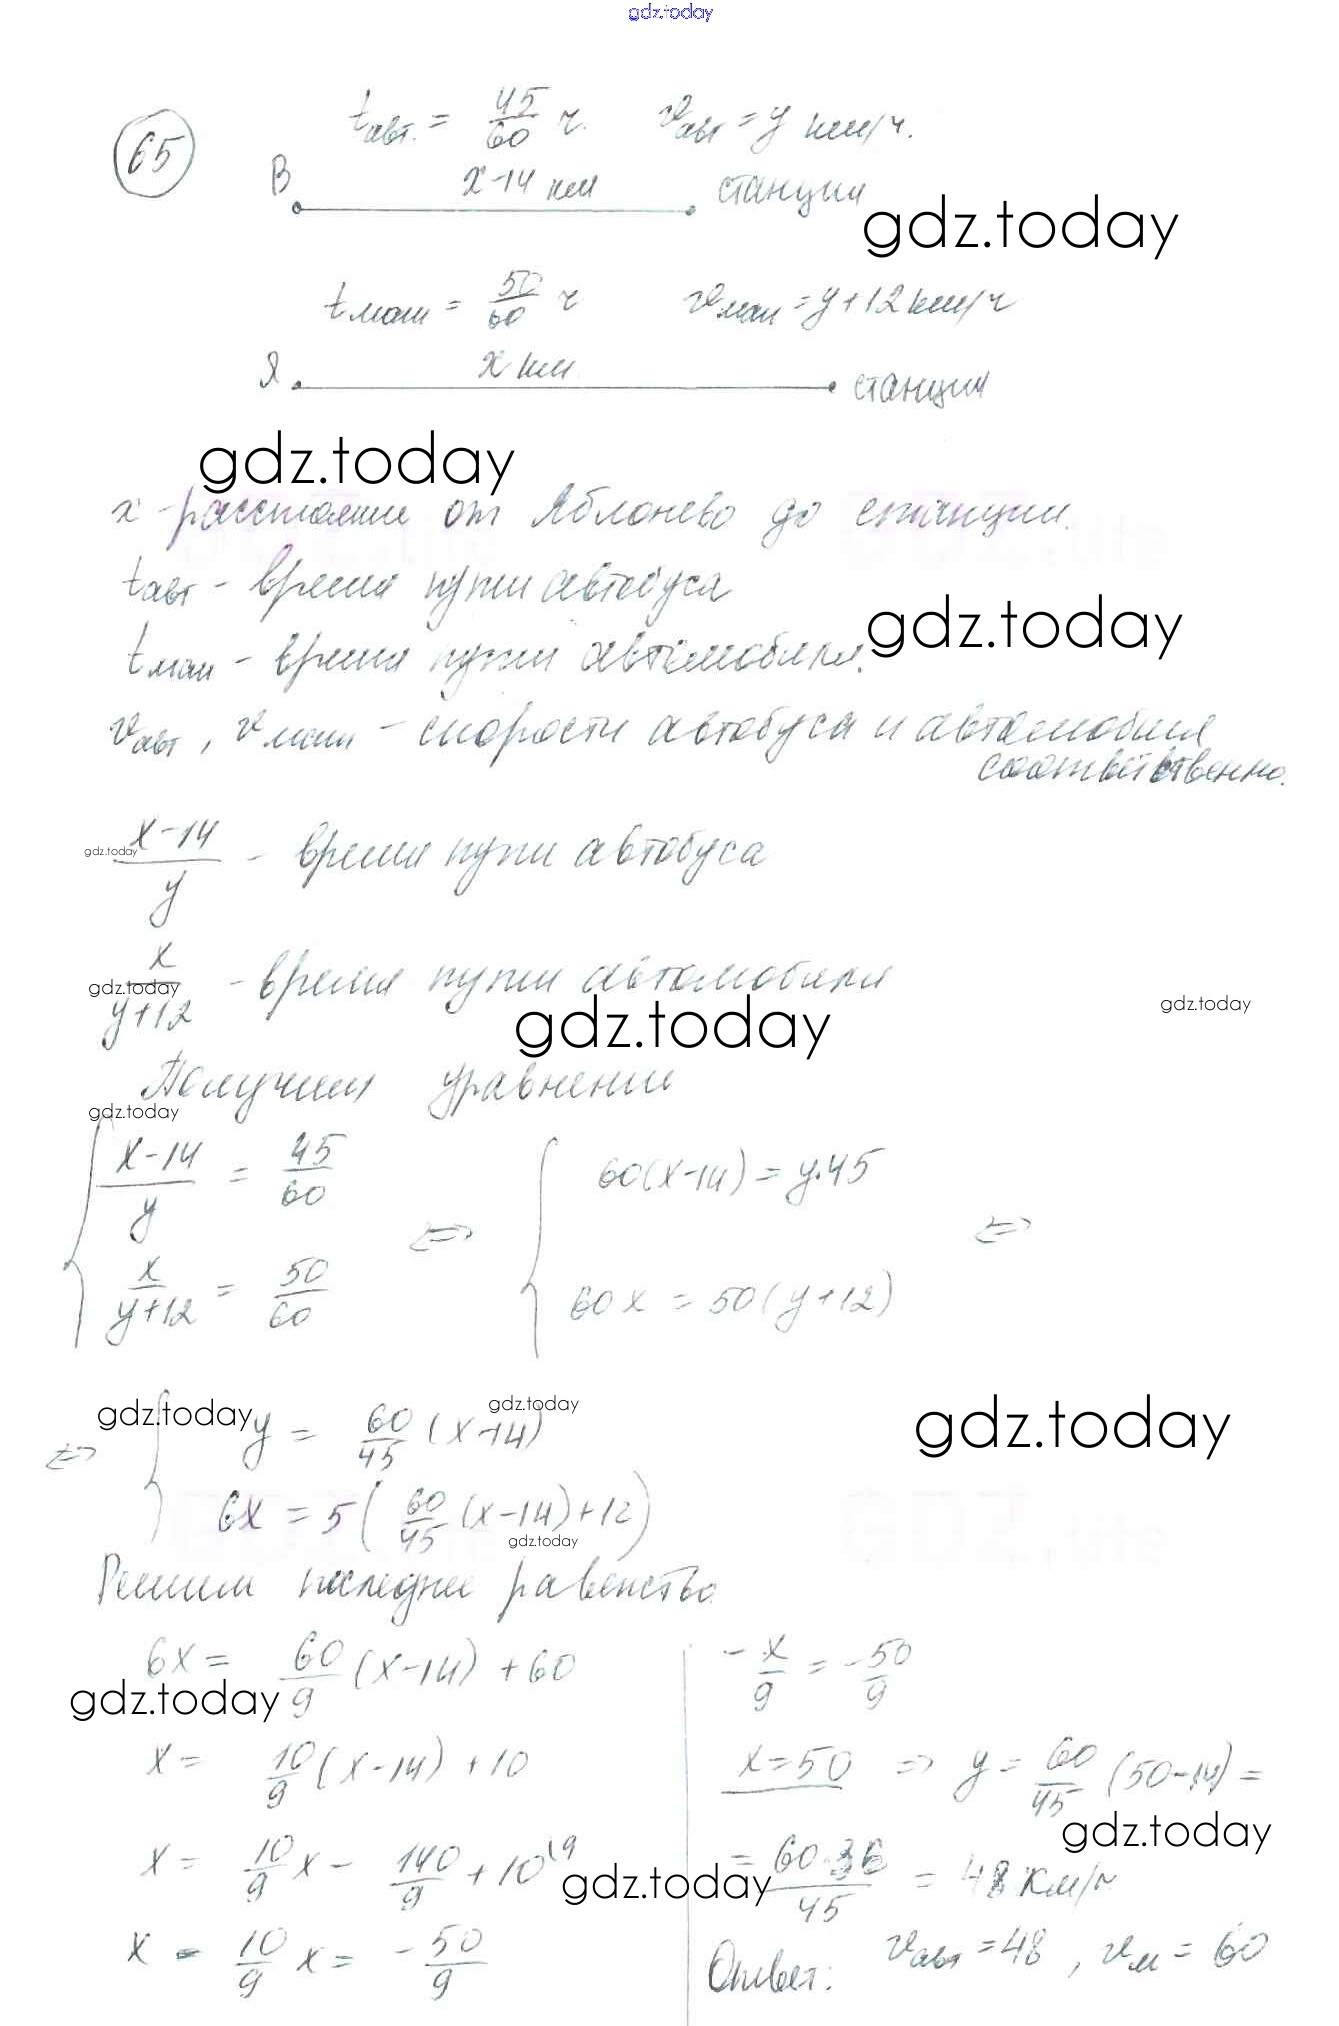 gdz.today
65
tавт. = 45/60 ч. vавт = y км/ч.
В x-14 км станции
gdz.today
tмаш = 50/60 ч vмаш = y+12 км/ч
Я x км станции
gdz.today
x - расстояние от Яблонево до станции.
tавт - время пути автобуса
gdz.today
tмаш - время пути автомобиля.
vавт, vмаш - скорости автобуса и автомобиля
соответственно.
gdz.today
(x-14)/y - время пути автобуса
gdz.today
x/(y+12) - время пути автомобиля
gdz.today
gdz.today
Получим уравнения
gdz.today
{ (x-14)/y = 45/60 <=> { 60(x-14) = y·45 <=>
x/(y+12) = 50/60 60x = 50(y+12)
gdz.today
gdz.today
gdz.today
<=> { y = 60/45 (x-14)
6x = 5(60/45 (x-14)+12)
gdz.today
Решим последнее равенство
6x = 60/9 (x-14) + 60
gdz.today
x = 10/9 (x-14) + 10
x = 10/9 x - 140/9 + 10 (9
gdz.today
x - 10/9 x = - 50/9
- x/9 = - 50/9
x = 50 => y = 60/45 (50-14) =
gdz.today
= 60·36/45 = 48 км/ч
Ответ: vавт = 48, vм = 60